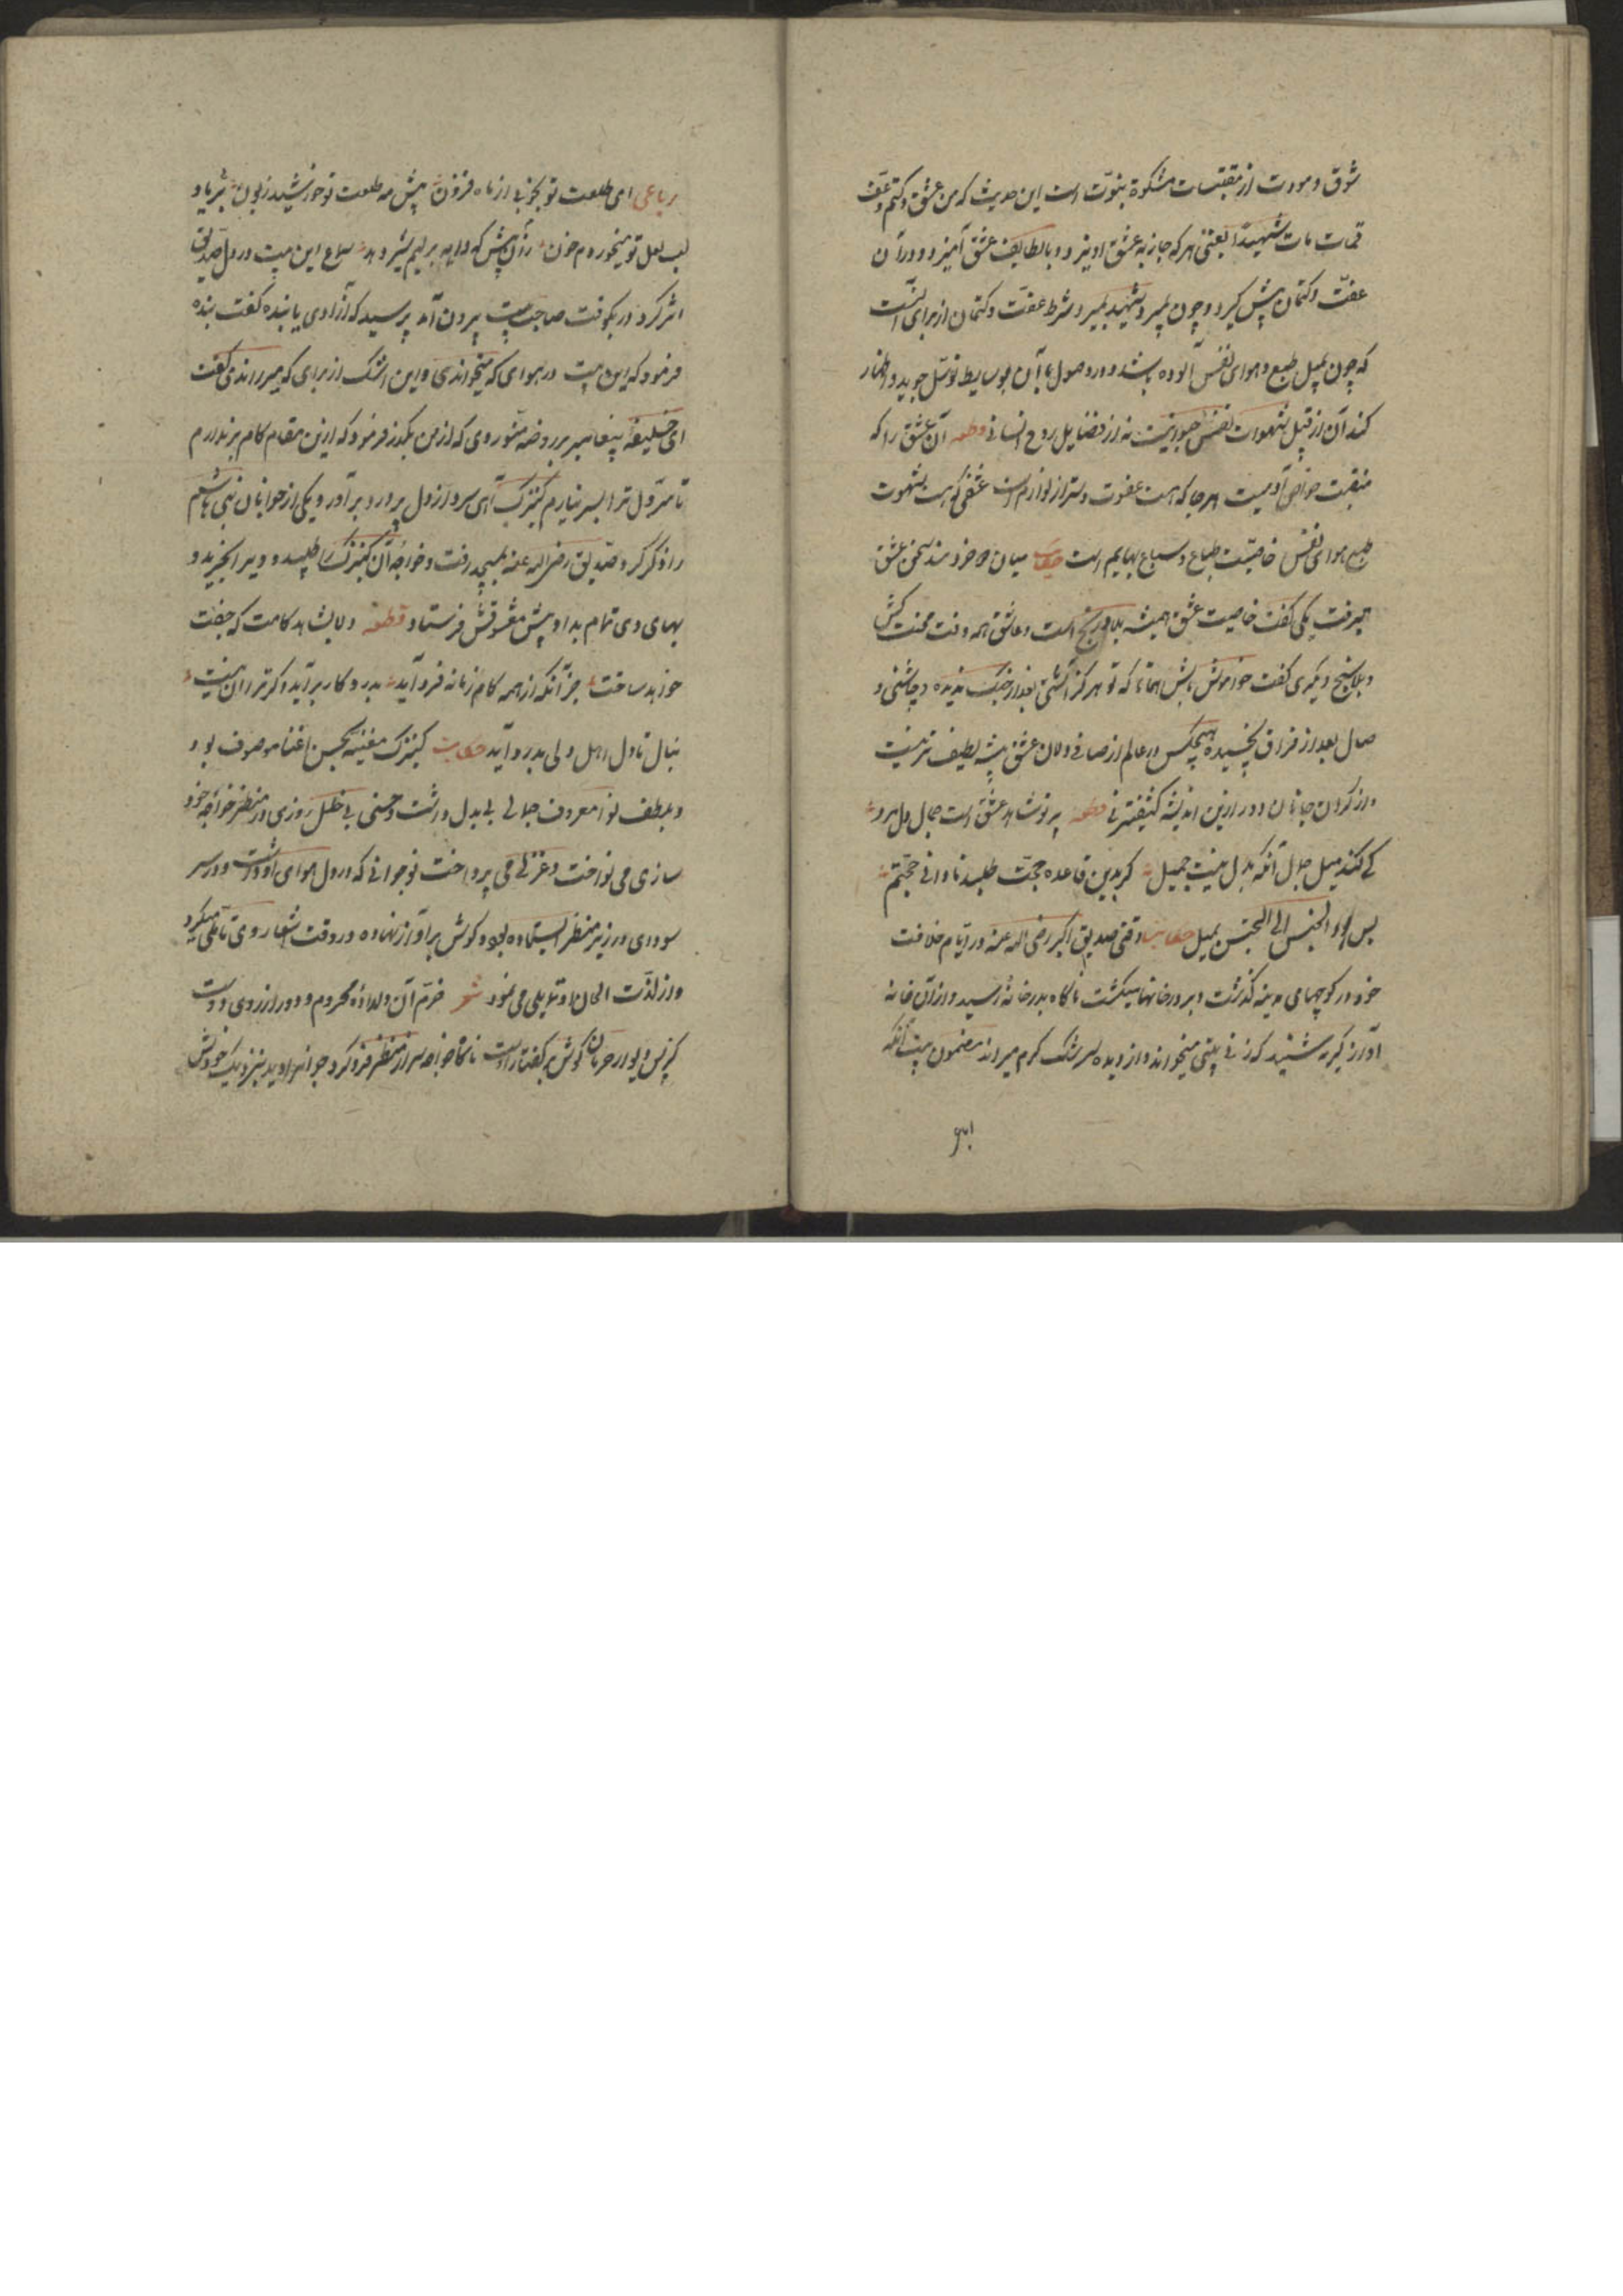 شوق و مودت از مقتبسات مشکوة نبوّت است این حدیث که من عشق و کتم و عفّ
فمات مات شهیدًا یعنی هر که جاذبه عشق آویزد و با لطایف عشق آمیزد و در آن
عفّت و کتمان پیش گیرد و چون بمیرد شهید بمیرد و شرط عفّت و کتمان از برای آنست
که چون بمیل طبع و هوای نفس آلوده باشد و در وصول بآن بوسایط توسّل جوید و اظهار
کند آن از قبیل شهوات نفس حیوانیست نه از فضایل روح انسانی قطعه آن عشق را که
منقبت خواص آدمیست هر جا که هست عفّت و ستر از لوازم است عشقی که هست شهوت
طبع هوای نفس خاصیّت طباع و سباع بهایم است حکایت میان دو خردمند سخن عشق
میرفت یکی گفت خاصیت عشق همیشه بلا و رنج است و عاشق همه وقت محنت کش
و بلا سنج دیگری گفت خاموش باش همانا که تو هرگز آشتی بعد از جنگ ندیده و چاشنی و
صال بعد از فراق نچشیده هیچکس در عالم از صافی دلان عشق پیشه لطیف تر نیست
و از گران جانان دور ازین اندیشه کثیفتر نی قطعه پرتو شاهد عشق است جمال دل مرد
کی کند میل جمال آنکه بدل نیست جمیل گر بدین قاعده حجت طلبد نادانی حجتم
بس بود الجنس الی الجنس یمیل حکایت وقتی صدیق اکبر رضی الله عنه در ایّام خلافت
خود در کوچهای مدینه گذشت و بر در خانها میگشت ناگاه بدر خانه رسید و از آن خانه
آواز گریه شنید که زنی بیتی میخواند و از دیده سرشک گرم میراند مضمون بیت آنکه
رباعی
رباعی ای طلعت تو بخوبی از ماه فزون پیش مه طلعت تو خورشید زبون بر یاد
لب لعل تو میخوردم خون زان پیش که دایه بر لبم شیر دهد سماع این بیت در دل صدّیق
اثر کرد در بکوفت صاحب بیت بیرون آمد پرسید که آزادی یا بنده گفت بنده
فرمود که این بیت در هوای که میخواندی و این اشک از برای که میراندی گفت
ای خلیفۀ پیغامبر بروضه منوّر وی که از من بگذر فرمود که ازین مقام گام برندارم
تا سرّ دل ترا بسر نیارم کنیزک آهی سرد از دل پر درد برآورد و یکی از جوانان بنی هاشم
را ذکر کرد صدّیق رضی الله عنه بمسجد رفت و خواجه آن کنیزک را طلبید و ویرا بخرید و
بهای وی تمام بداد و پیش معشوقش فرستاد قطعه دلا شاهد کامت که جفت
خواهد ساخت جز آنکه از همه کام زمانه فرد آید بدرد کار برآید و گر ترا آن نیست
بنال تا دل اهل دلی بدرد آید حکایت کنیزک مغنیه بحسن غنا موصوف بود
و بلطف نوا معروف جمالی بی بدل داشت و حسنی بی خلل روزی در منظر خواجه خود
سازی می نواخت و غزلی می پرداخت نوجوانی که در دل هوای او داشت و در سر
سودای در زیر منظر ایستاده بود و گوش بر آواز نهاده در وقت اشعار وی تأمّلی میکرد
و از لذّت الحان او تمایلی می نمود شعر خرّم آن دلدادۀ محروم و دور از روی دوست
کز پس دیوار حرمان گوش بر گفتار اوست ناگاه خواجه سر از منظر فرو کرد جوانرا دید نزدیک خودش